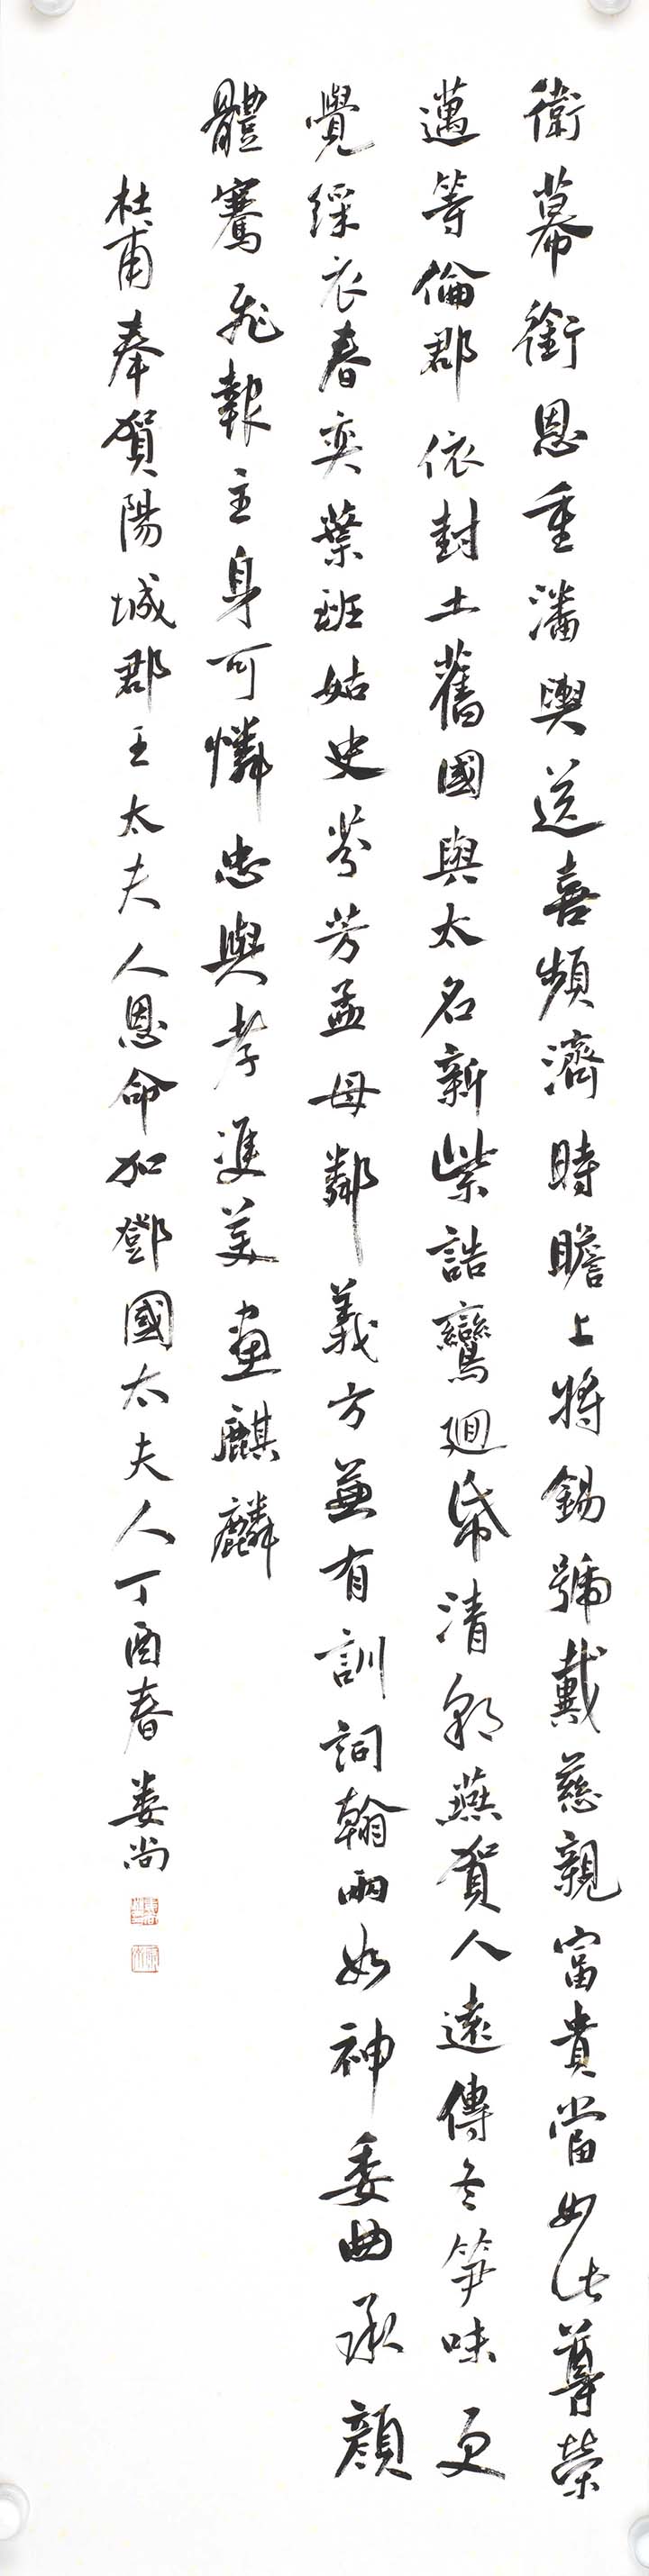 衛幕銜恩重潘輿送喜頻濟時瞻上將錫號戴慈親富貴當如此尊榮
邁等倫郡依封土舊國與太名新紫誥鸞迴紙清朝燕賀人遠傳冬筍味更
覺綵衣春奕葉班姑史芬芳孟母鄰義方兼有訓詞翰兩如神委曲承顏
體騫飛報主身可憐忠與孝雙美畫麒麟
杜甫奉賀陽城郡王太夫人恩命加鄧國太夫人丁酉春婁尚